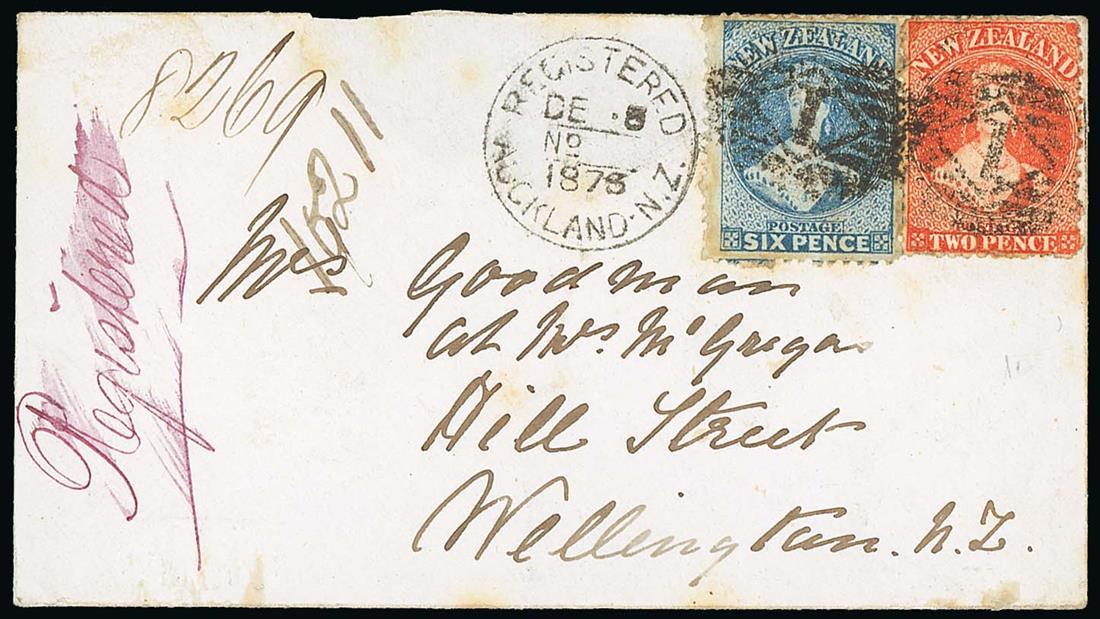 8269
11
Registered
REGISTERED
DE . 8
No
1873
AUCKLAND. N.Z.
NEW ZEALAND
1
POSTAGE
SIX PENCE
NEW ZEALAND
1
POSTAGE
TWO PENCE
Mrs Goodman
at Mrs. McGregors
Hill Street
Wellington. N.Z.